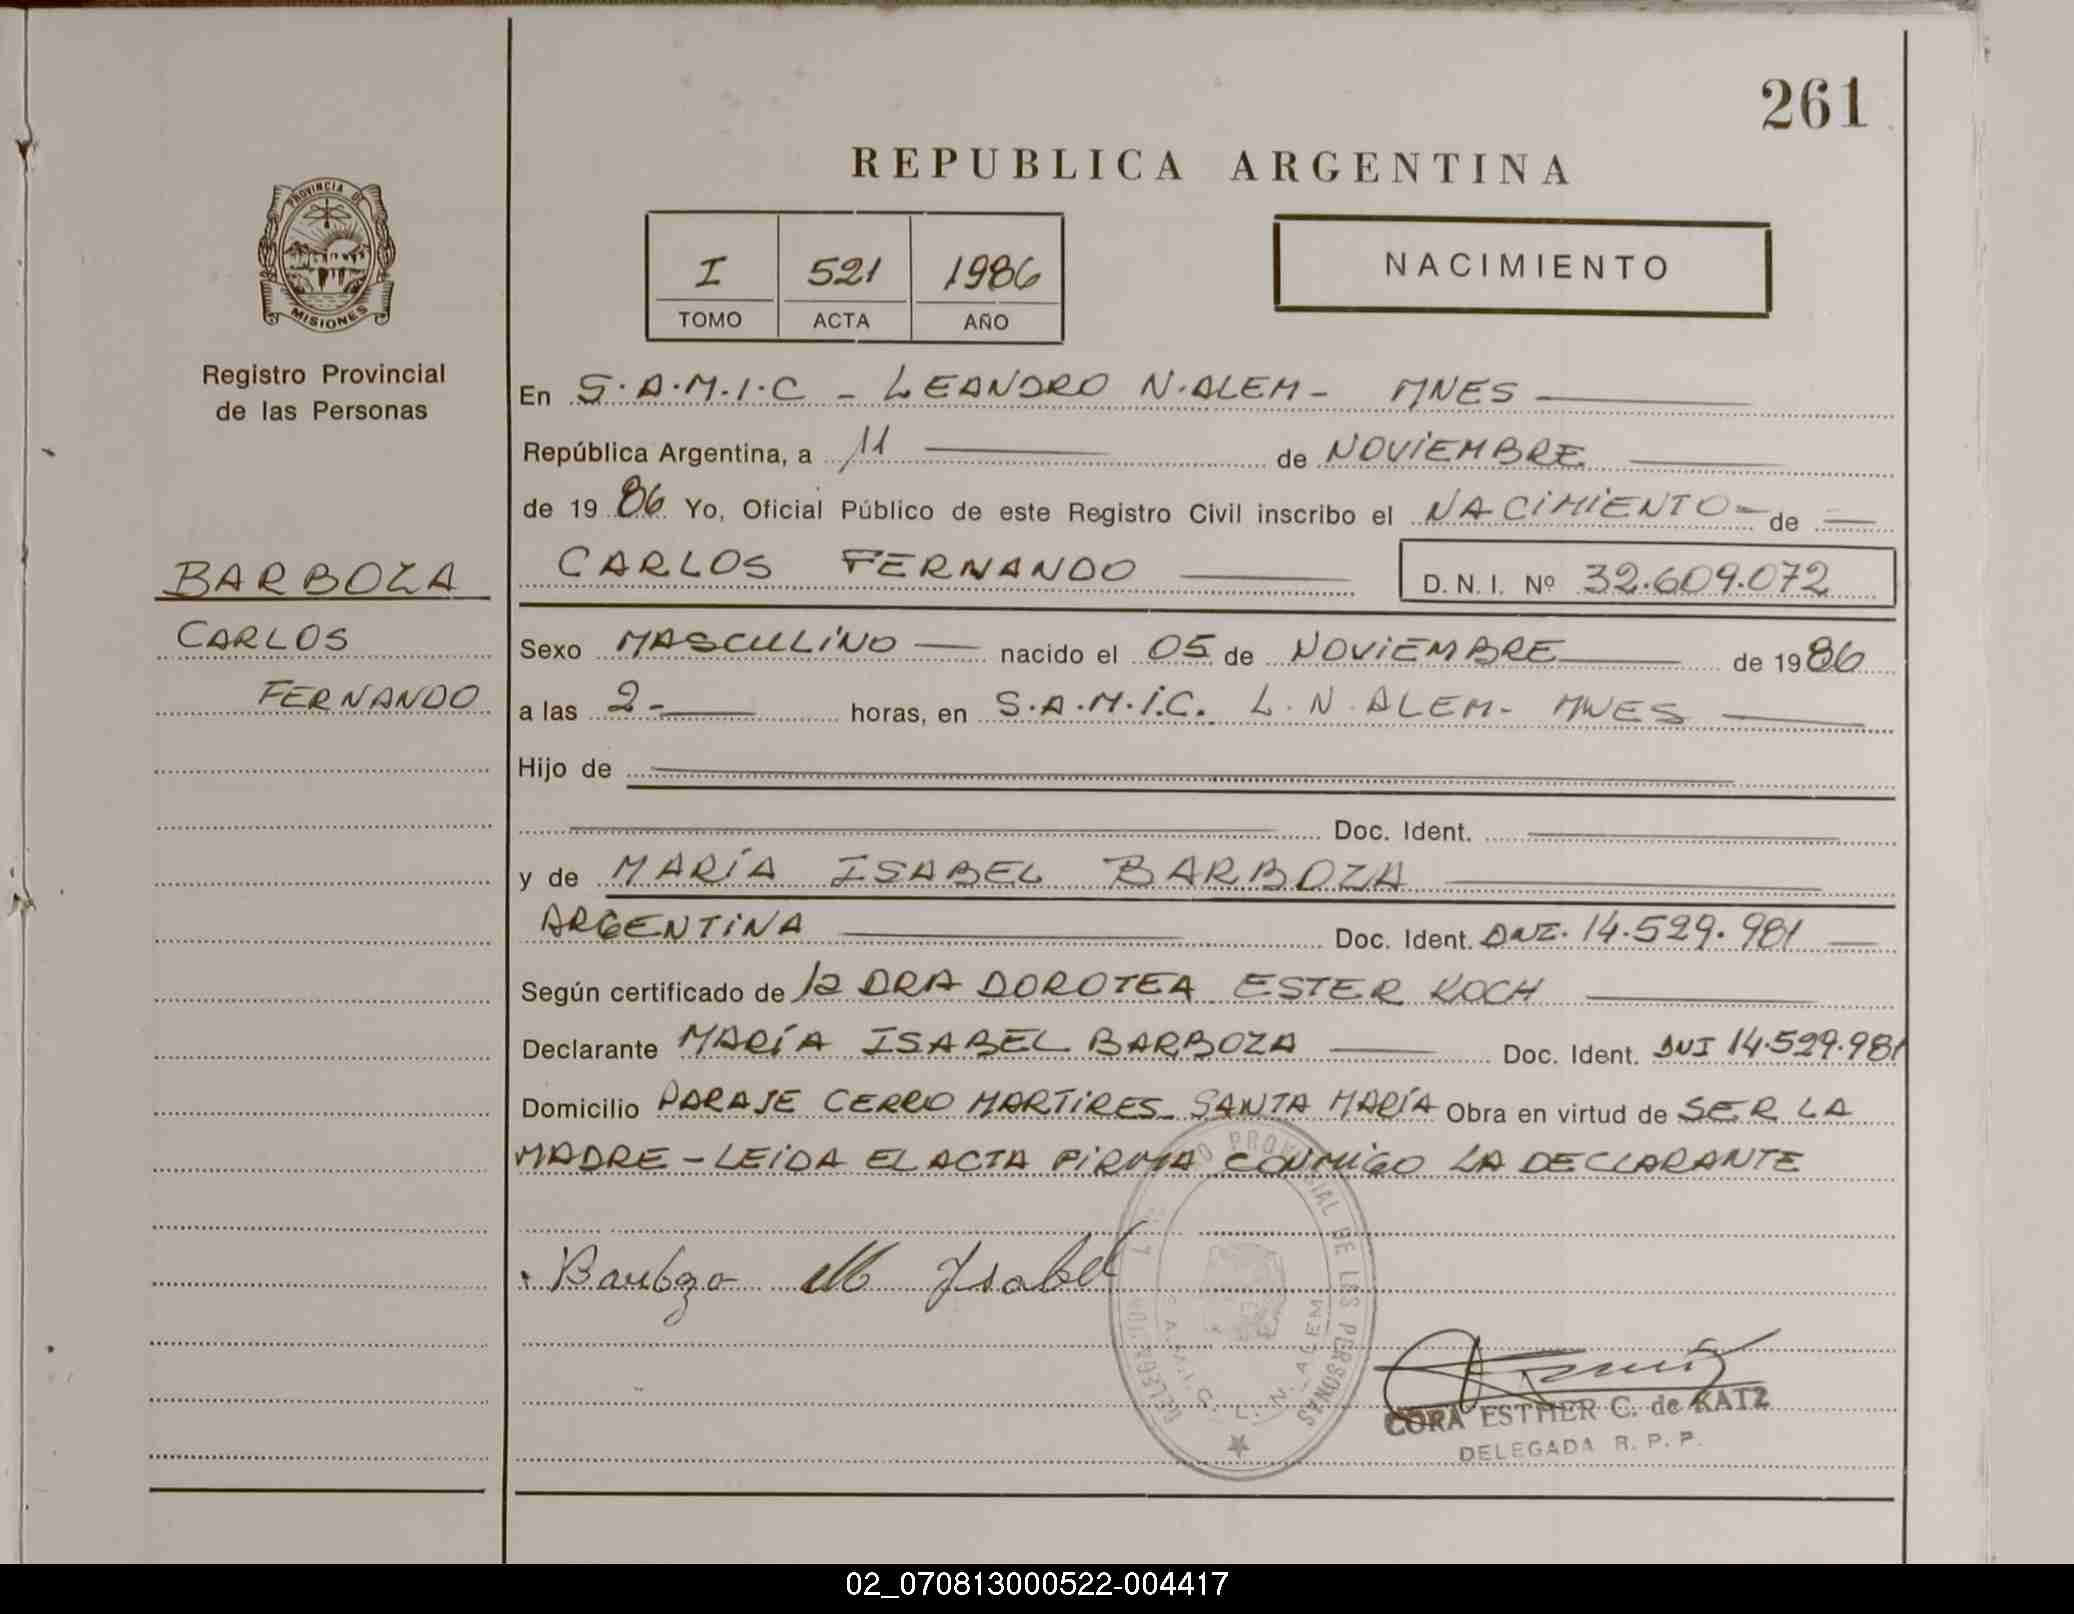 261
REPUBLICA ARGENTINA
PROVINCIA DE
MISIONES
Registro Provincial
de las Personas
I 521 1986
TOMO ACTA AÑO
NACIMIENTO
En S.A.M.I.C - LEANDRO N.ALEM - MNES
República Argentina, a 11 de NOVIEMBRE
de 1986 Yo, Oficial Público de este Registro Civil inscribo el NACIMIENTO - de
CARLOS FERNANDO D.N.I. Nº 32.609.072
BARBOZA
CARLOS
FERNANDO
Sexo MASCULINO nacido el 05 de NOVIEMBRE de 1986
a las 2 - horas, en S.A.M.I.C. L.N.ALEM - MNES
Hijo de
Doc. Ident.
y de MARÍA ISABEL BARBOZA
ARGENTINA Doc. Ident. DNI. 14.529.981
Según certificado de la DRA DOROTEA ESTER KOCH
Declarante MARÍA ISABEL BARBOZA Doc. Ident. DNI 14.529.981
Domicilio PARAJE CERRO MARTIRES - SANTA MARÍA Obra en virtud de SER LA
MADRE - LEIDA EL ACTA FIRMA CONMIGO LA DECLARANTE
Barboza M Isabel
PROVINCIAL DE LAS PERSONAS
S.A.M.I.C. L.N. ALEM
CORA ESTHER C. de KATZ
DELEGADA R.P.P.
02_070813000522-004417